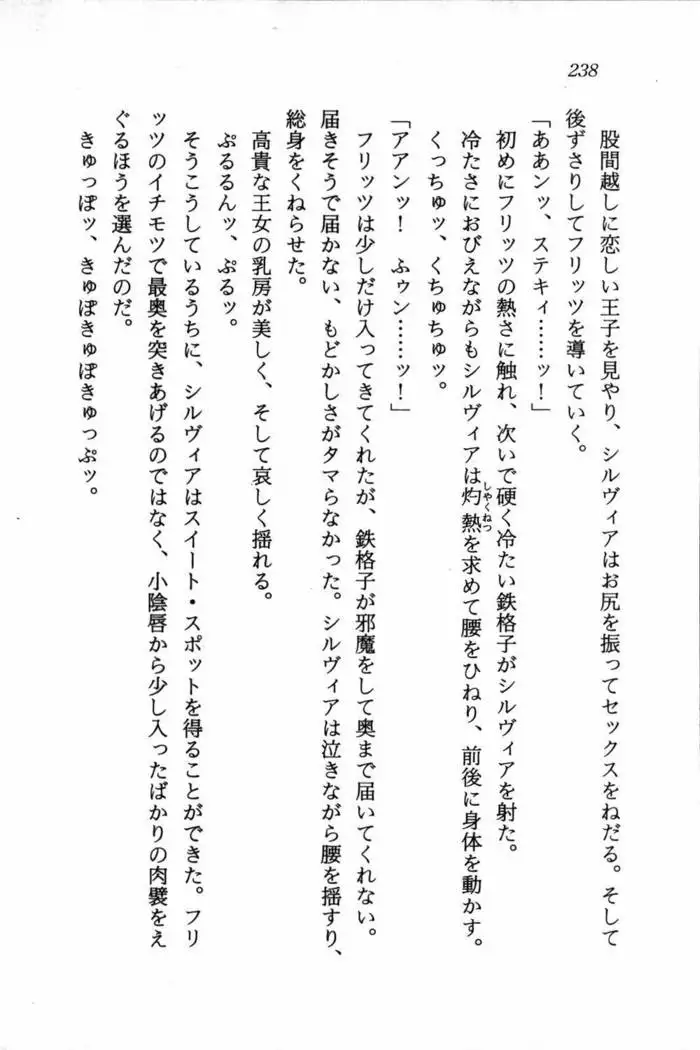 238
股間越しに恋しい王子を見やり、シルヴィアはお尻を振ってセックスをねだる。そして
後ずさりしてフリッツを導いていく。
「ああンッ、ステキィ……ッ！」
初めにフリッツの熱さに触れ、次いで硬く冷たい鉄格子がシルヴィアを射た。
冷たさにおびえながらもシルヴィアは灼熱しゃくねつを求めて腰をひねり、前後に身体を動かす。
くっちゅッ、くちゅちゅッ。
「アアンッ！　ふゥン……ッ！」
フリッツは少しだけ入ってきてくれたが、鉄格子が邪魔をして奥まで届いてくれない。
届きそうで届かない、もどかしさがタマらなかった。シルヴィアは泣きながら腰を揺すり、
総身をくねらせた。
高貴な王女の乳房が美しく、そして哀しく揺れる。
ぷるるんッ、ぷるッ。
そうこうしているうちに、シルヴィアはスイート・スポットを得ることができた。フリ
ッツのイチモツで最奥を突きあげるのではなく、小陰唇から少し入ったばかりの肉襞をえ
ぐるほうを選んだのだ。
きゅっぽッ、きゅぽきゅぽきゅっぷッ。